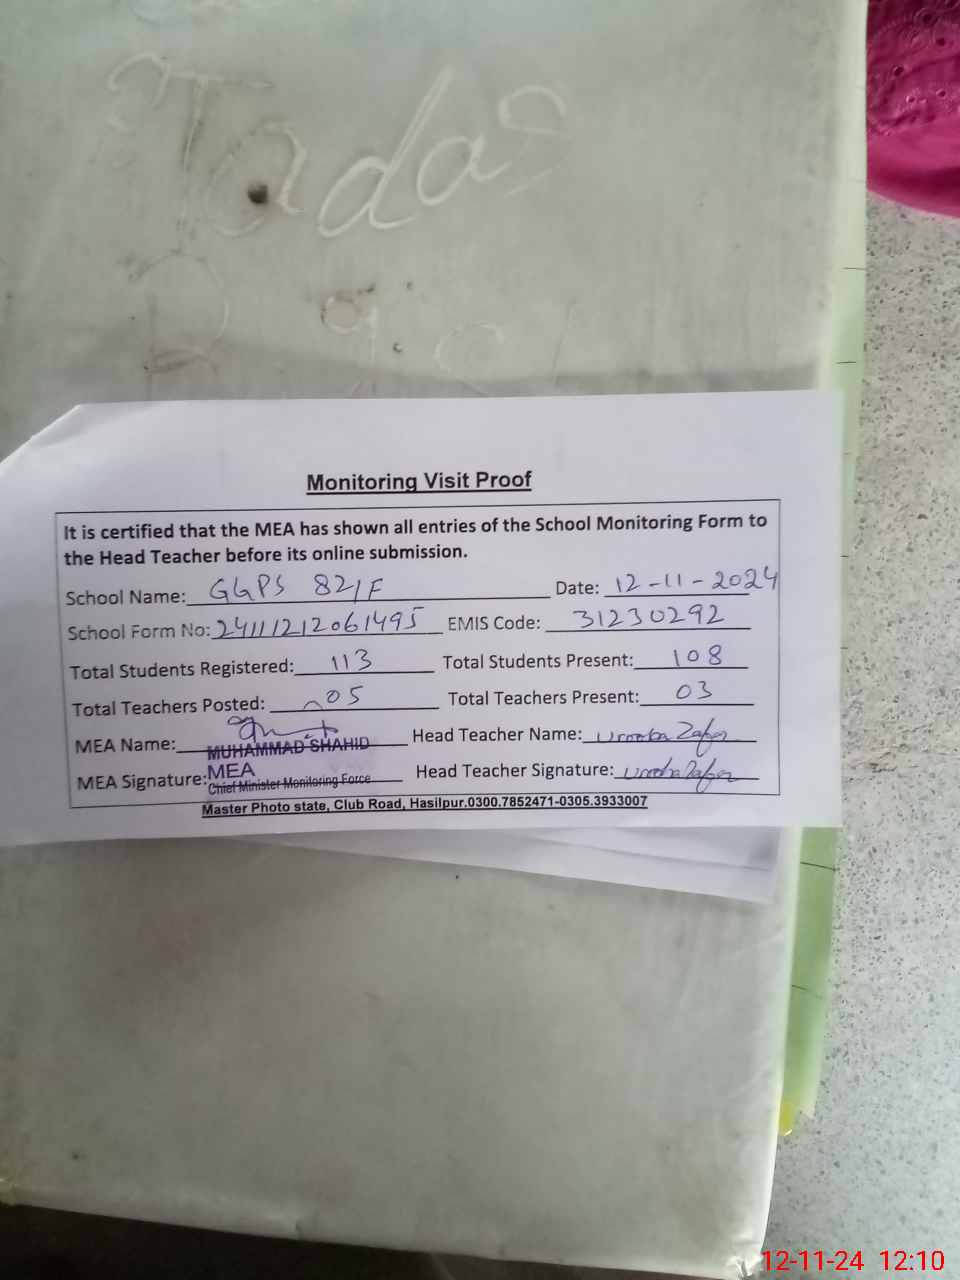 Tadas
Monitoring Visit Proof
It is certified that the MEA has shown all entries of the School Monitoring Form to
the Head Teacher before its online submission.
School Name: GGPS 82/F Date: 12-11-2024
School Form No: 24111212061495 EMIS Code: 31230292
Total Students Registered: 113 Total Students Present: 108
Total Teachers Posted: 05 Total Teachers Present: 03
MEA Name: MUHAMMAD SHAHID Head Teacher Name: Urooba Zafar
MEA Signature: MEA Head Teacher Signature: Urooba Zafar
Chief Minister Monitoring Force
Master Photo state, Club Road, Hasilpur.0300.7852471-0305.3933007
12-11-24 12:10